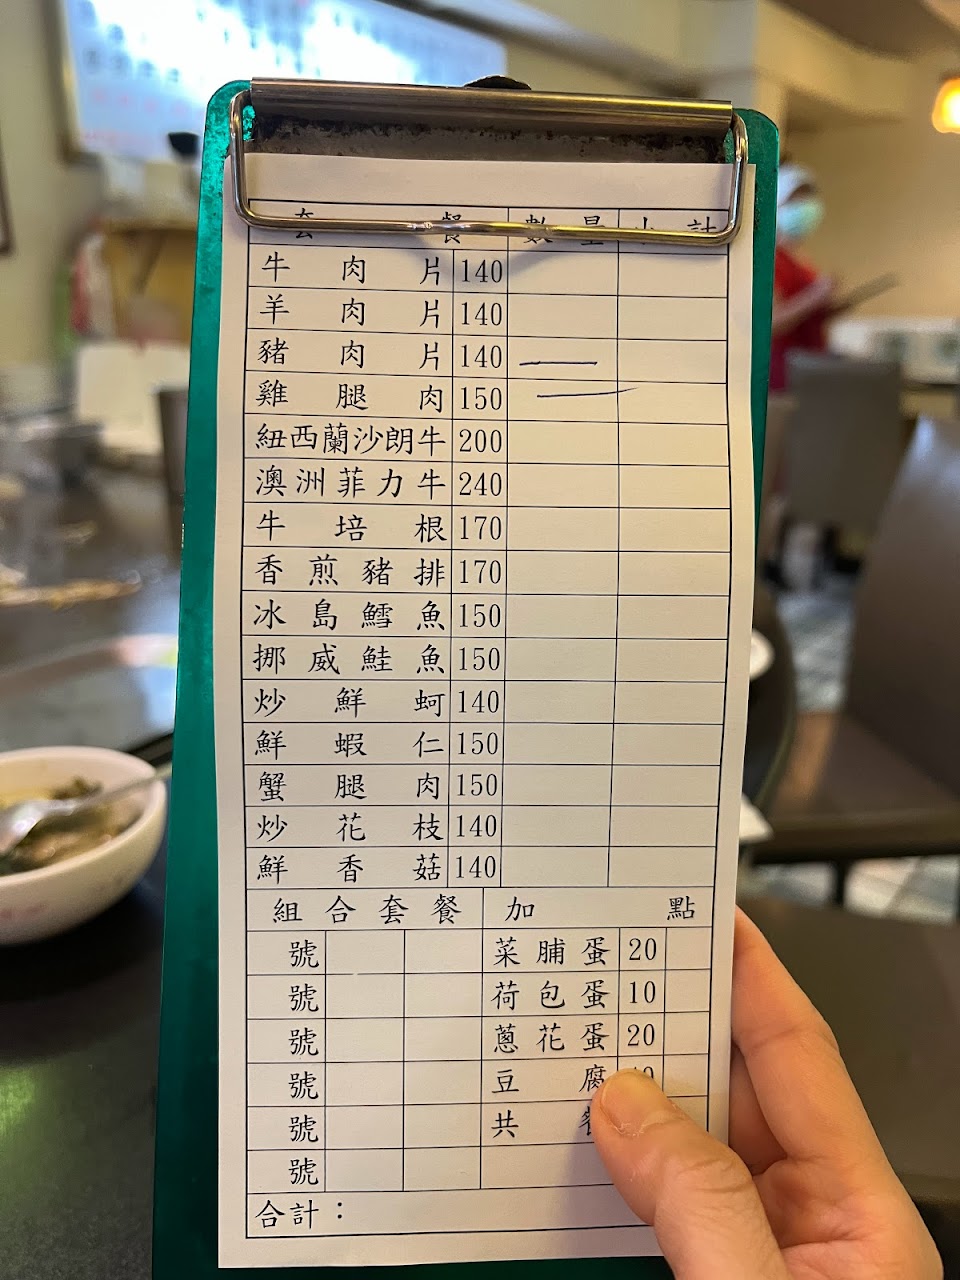 套餐 數量 小計
牛肉片 140
羊肉片 140
豬肉片 140
雞腿肉 150
紐西蘭沙朗牛 200
澳洲菲力牛 240
牛培根 170
香煎豬排 170
冰島鱈魚 150
挪威鮭魚 150
炒鮮蚵 140
鮮蝦仁 150
蟹腿肉 150
炒花枝 140
鮮香菇 140
組合套餐 加點
號 菜脯蛋 20
號 荷包蛋 10
號 蔥花蛋 20
號 豆腐
號 共餐
號
合計：